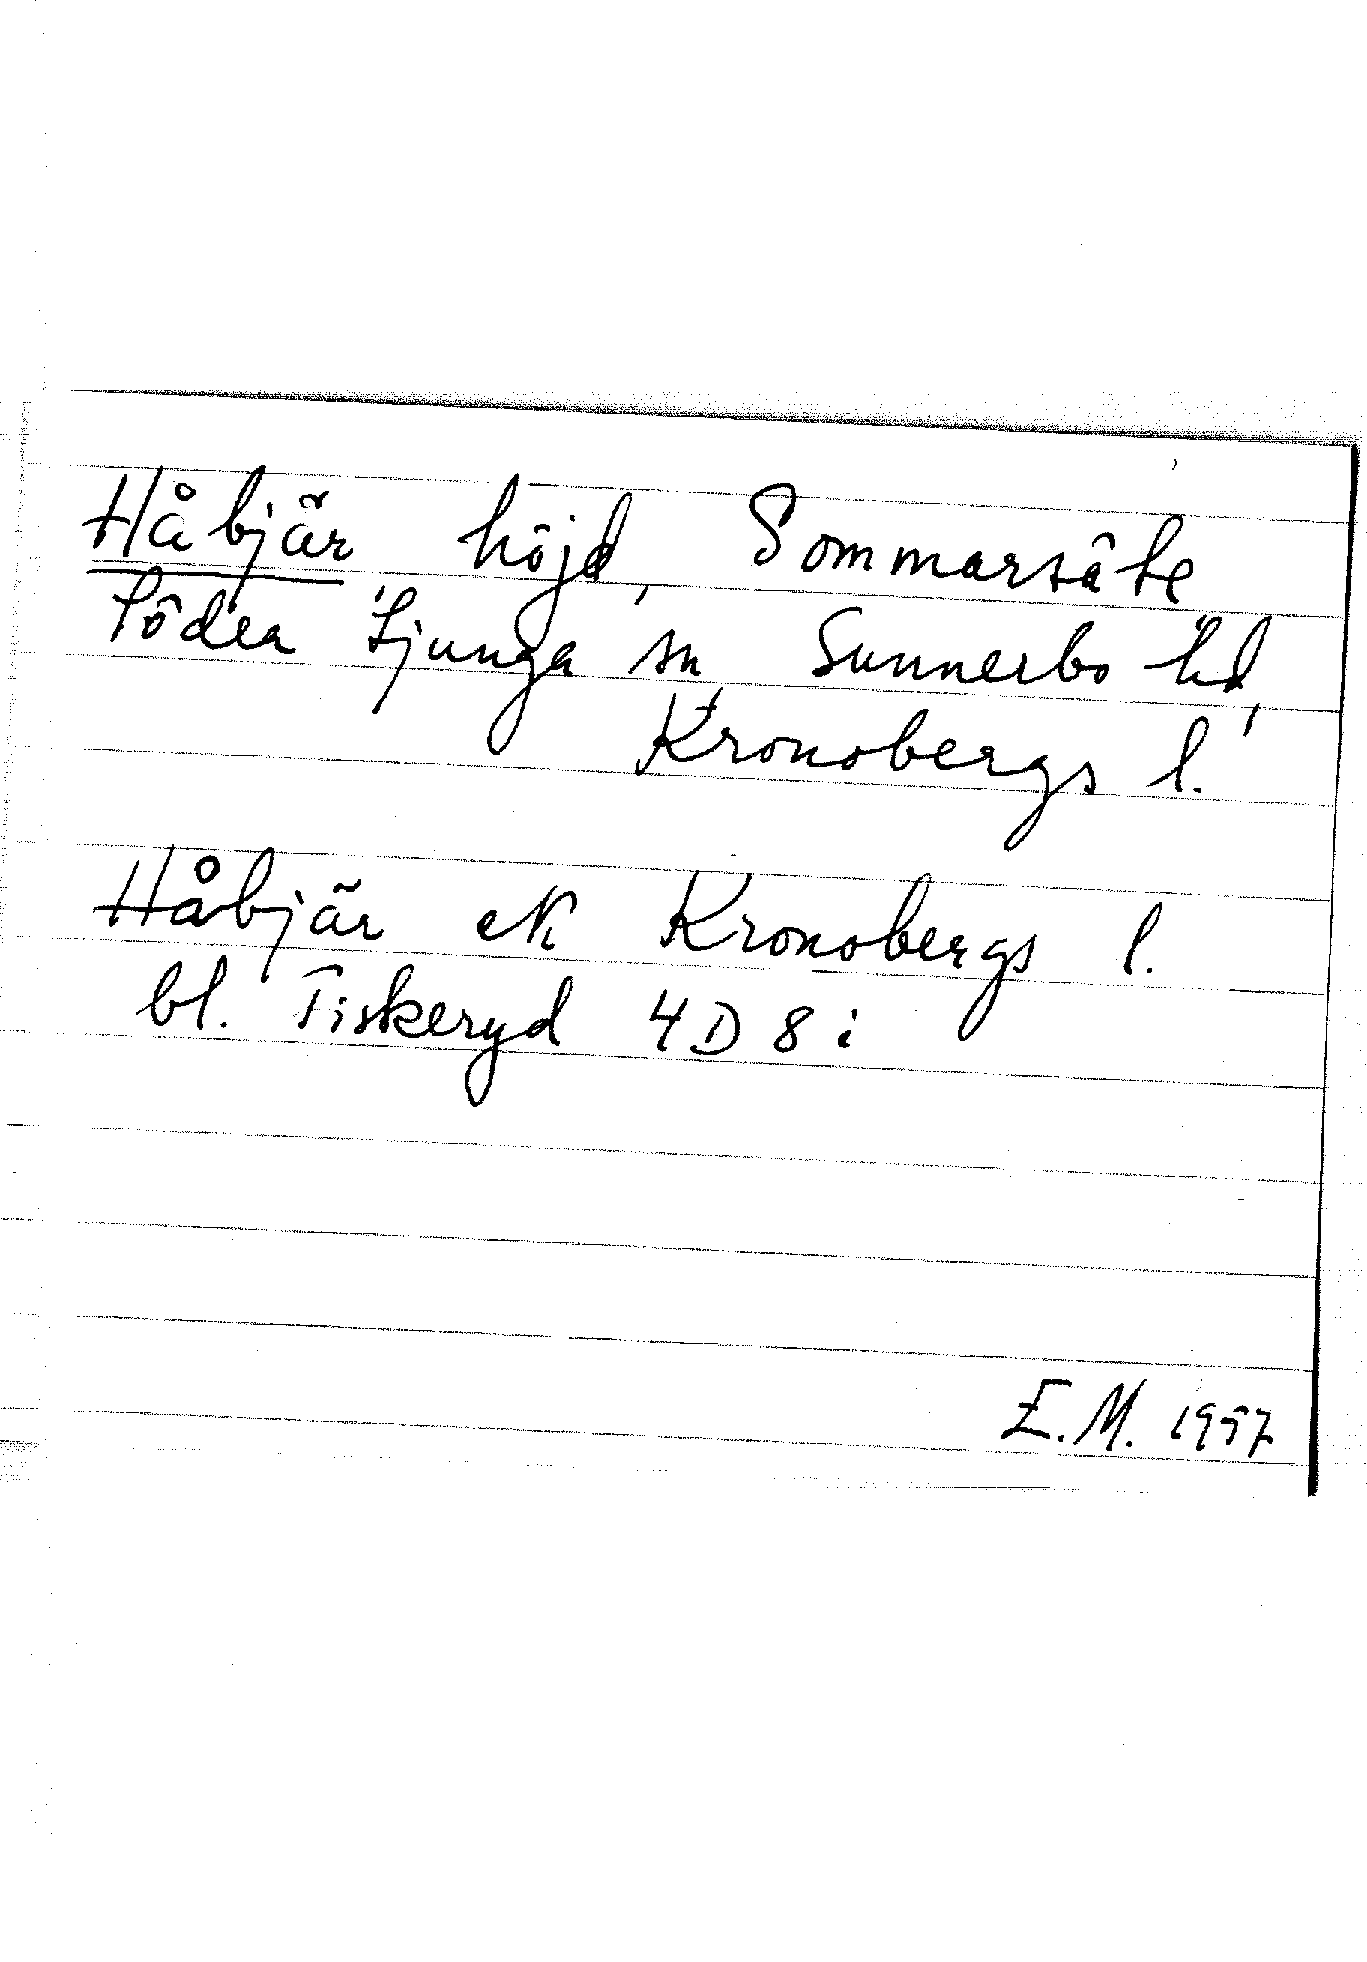 Håbjär höjd, Sommarsäte
Södra Ljunga sn Sunnerbo hd,
Kronobergs l.
Håbjär ek Kronobergs l.
bl. Fiskeryd 4D 8 i
E.M. 1957